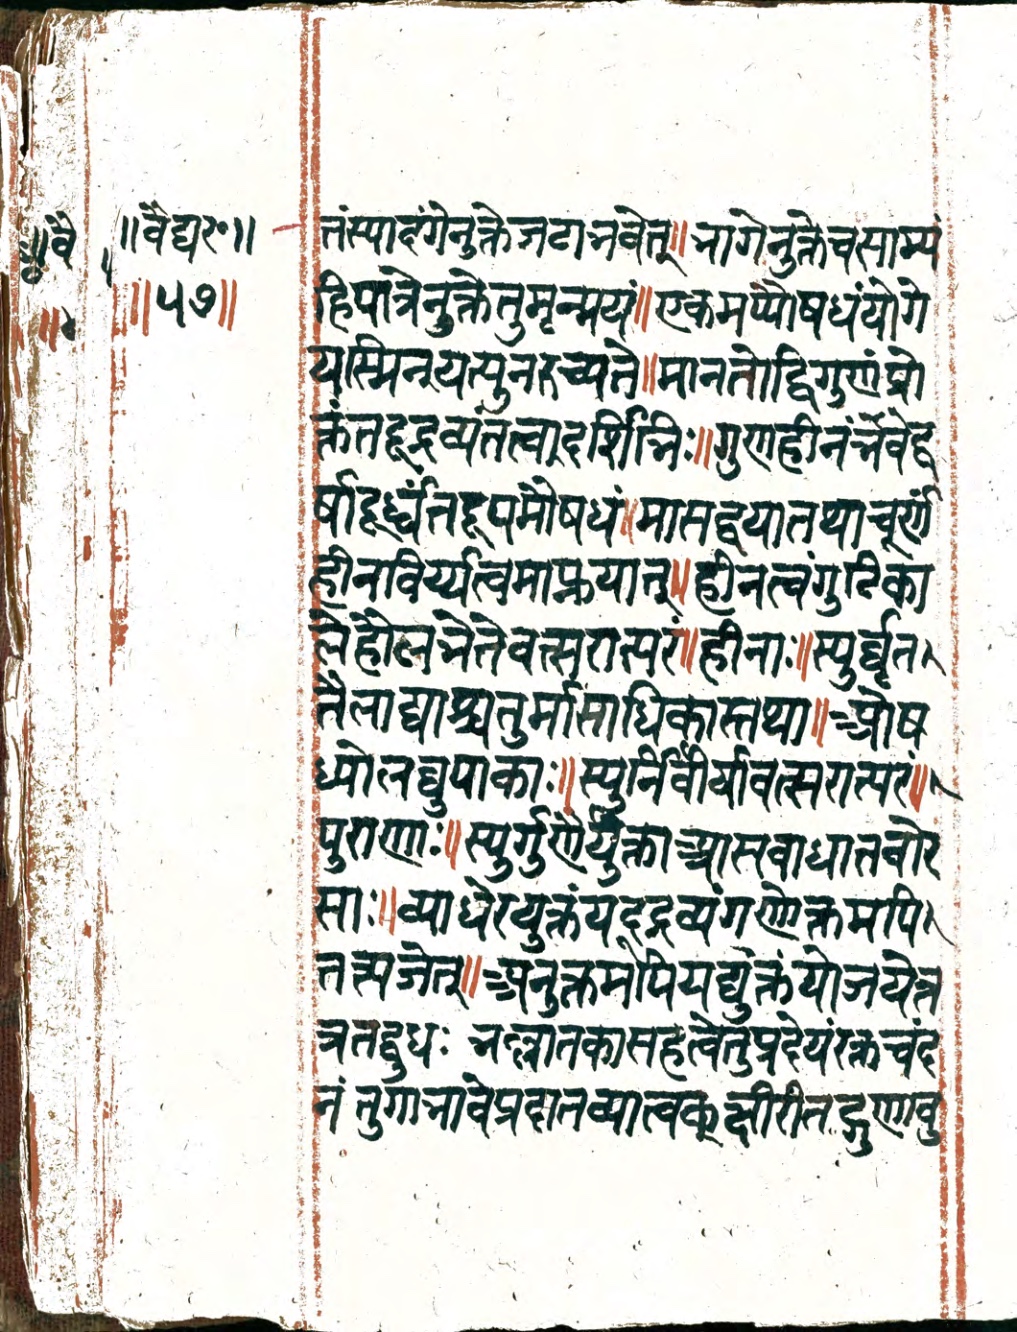 ॥वैद्यर॰॥
॥५७॥
॥वै
त्तंस्पादंगेनुक्तेजटाभवेत्॥भागेनुक्तेचसाम्पं
हिपात्रेनुक्तेतुमृन्मयं॥एकमप्पोषधंयोगे
यास्मिन्यत्पुनरुच्यते॥मानतोद्विगुणंप्रो
क्तंतद्द्रव्यंतत्वादर्शिभिः॥गुणहीनंर्भवेद्व
र्षादूर्ध्वंतद्रूपमौषधं॥मासद्वयातथाचूर्णं
हीनविर्य्यत्वमाप्नुयात्॥हीनत्वंगुटिका
लेहौलभेतेवत्सरात्परं॥हीनाः॥स्पुर्घृत
तैलाद्याश्चतुर्मासाधिकास्तथा॥ओष
ध्योलघुपाकाः॥स्पुर्निर्वीर्यावत्सरात्परं॥
पुराणाः॥स्पुर्गुणैर्युक्ताआसवाधातवोर
साः॥व्याधेरयुक्तंयद्द्रव्यंगणोक्तमपि
तत्त्यजेत्॥अनुक्तमपियद्युक्तंयोजयेत्त
त्रतद्बुधः भल्लातकासहत्वेतुप्रदेयंरक्तचंद
नं तुगाभावेप्रदातव्यात्वक्क्षीरीतद्गुणावु